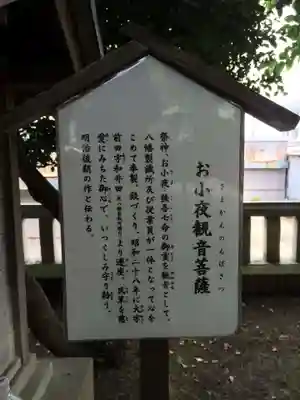 お小夜観音菩薩
さよかんのんぼさつ
祭神、お小夜、後吾七命の御霊を観音として、
八幡製鐵所及び従業員が一体となって心を
こめて奉製、鋲づくり。昭和二十八年に大字
前田字和井田より遷座。氏業を慈
愛にみちた御心で、いつくしみ守り給う。
明治後期の作と伝わる。